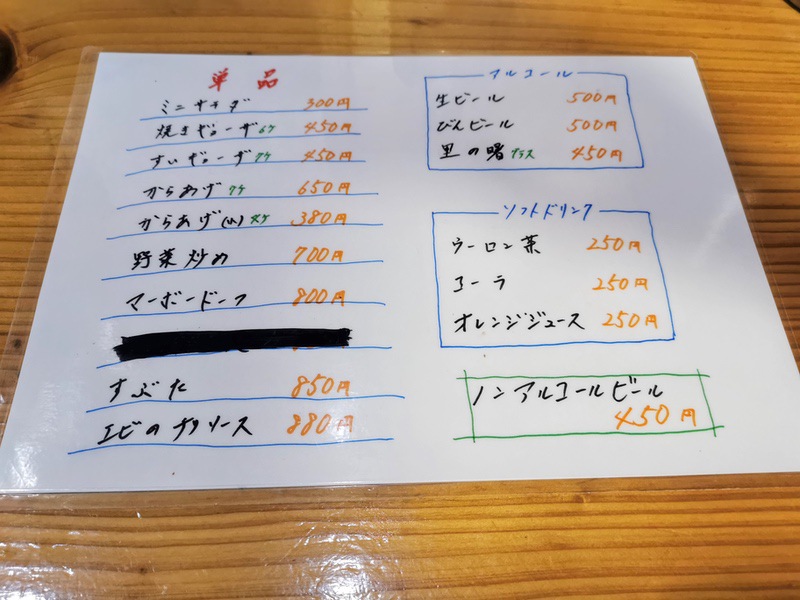 単品
ミニサラダ 300円
焼きギョーザ 6ケ 450円
すいギョーザ 7ケ 450円
からあげ 7ケ 650円
からあげ(小) 380円
野菜炒め 700円
マーボードーフ 800円
すぶた 850円
エビのチリソース 880円
アルコール
生ビール 500円
びんビール 500円
里の曙 グラス 450円
ソフトドリンク
ウーロン茶 250円
コーラ 250円
オレンジジュース 250円
ノンアルコールビール
450円